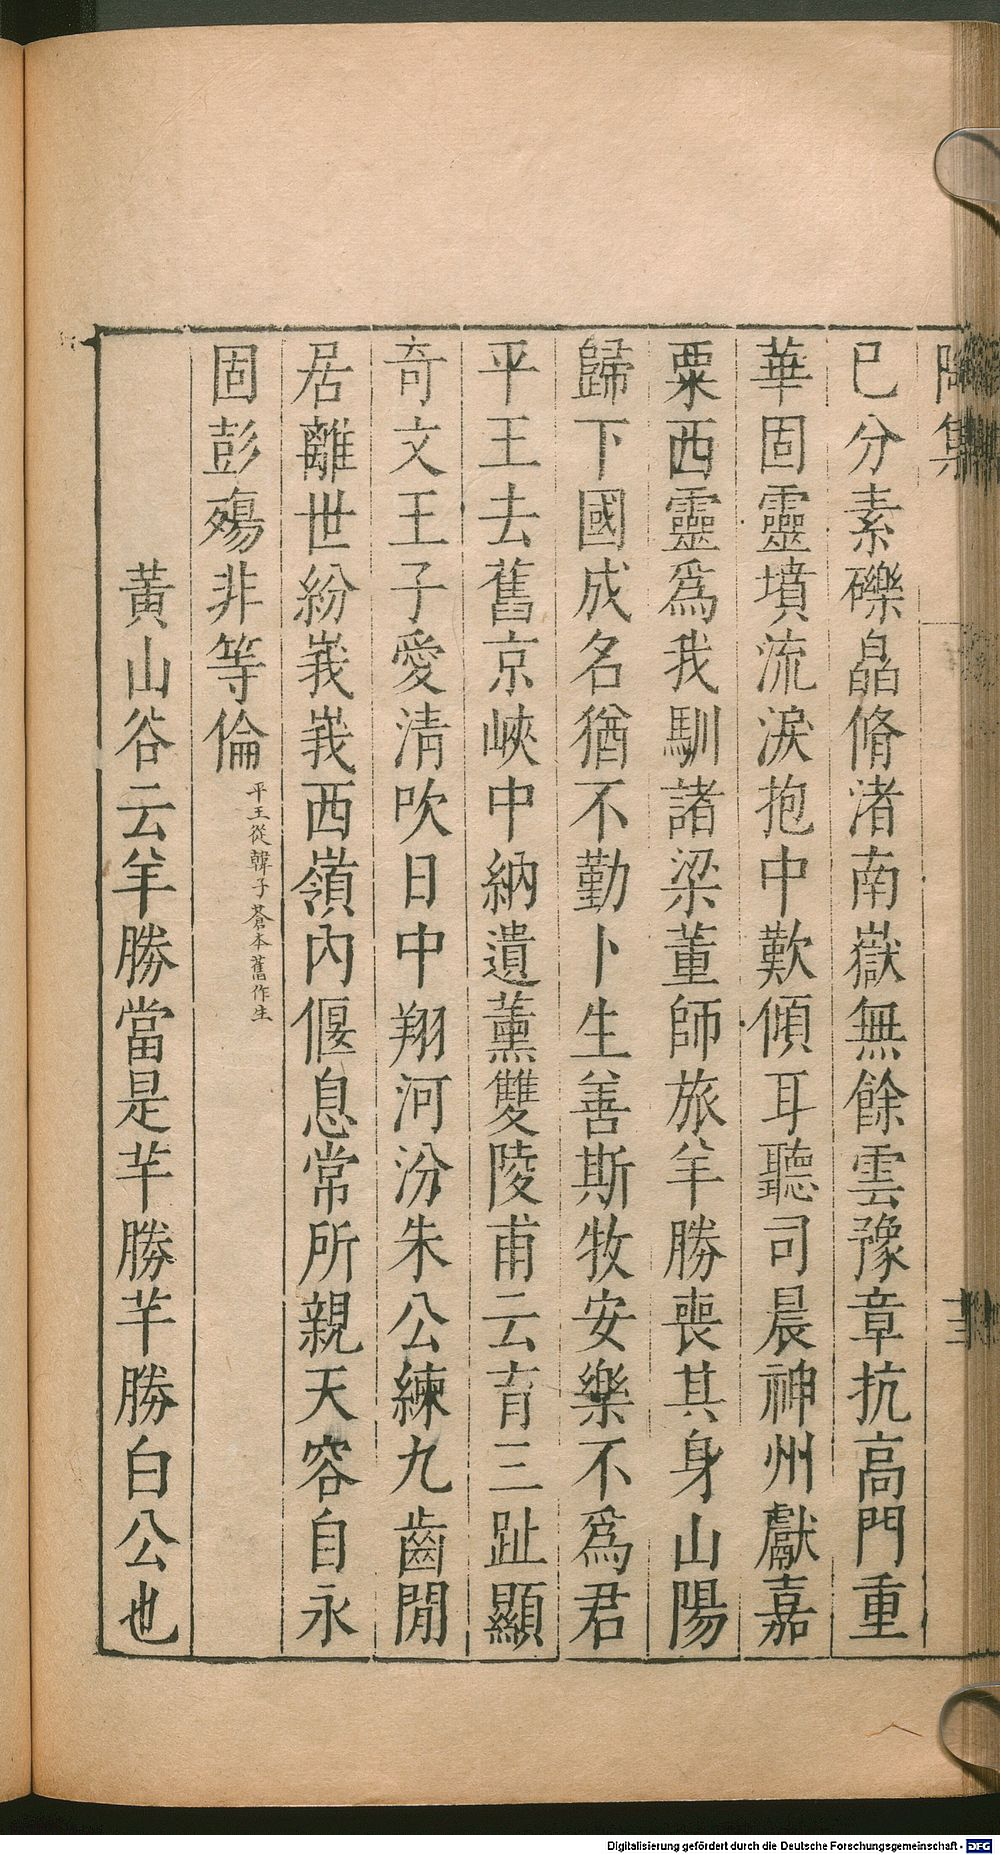 陶集
已分素礫皛脩渚南嶽無餘雲豫章抗高門重
華固靈墳流淚抱中歎傾耳聽司晨神州獻嘉
粟西靈爲我馴諸梁董師旅羊勝喪其身山陽
歸下國成名猶不勤卜生善斯牧安樂不爲君
平王去舊京峽中納遺薰雙陵甫云育三趾顯
奇文王子愛清吹日中翔河汾朱公練九齒閒
居離世紛峩峩西嶺內偃息常所親天容自永
固彭殤非等倫
平王從韓子蒼本舊作生
黃山谷云羊勝當是羋勝羋勝白公也
Digitalisierung gefördert durch die Deutsche Forschungsgemeinschaft - DFG